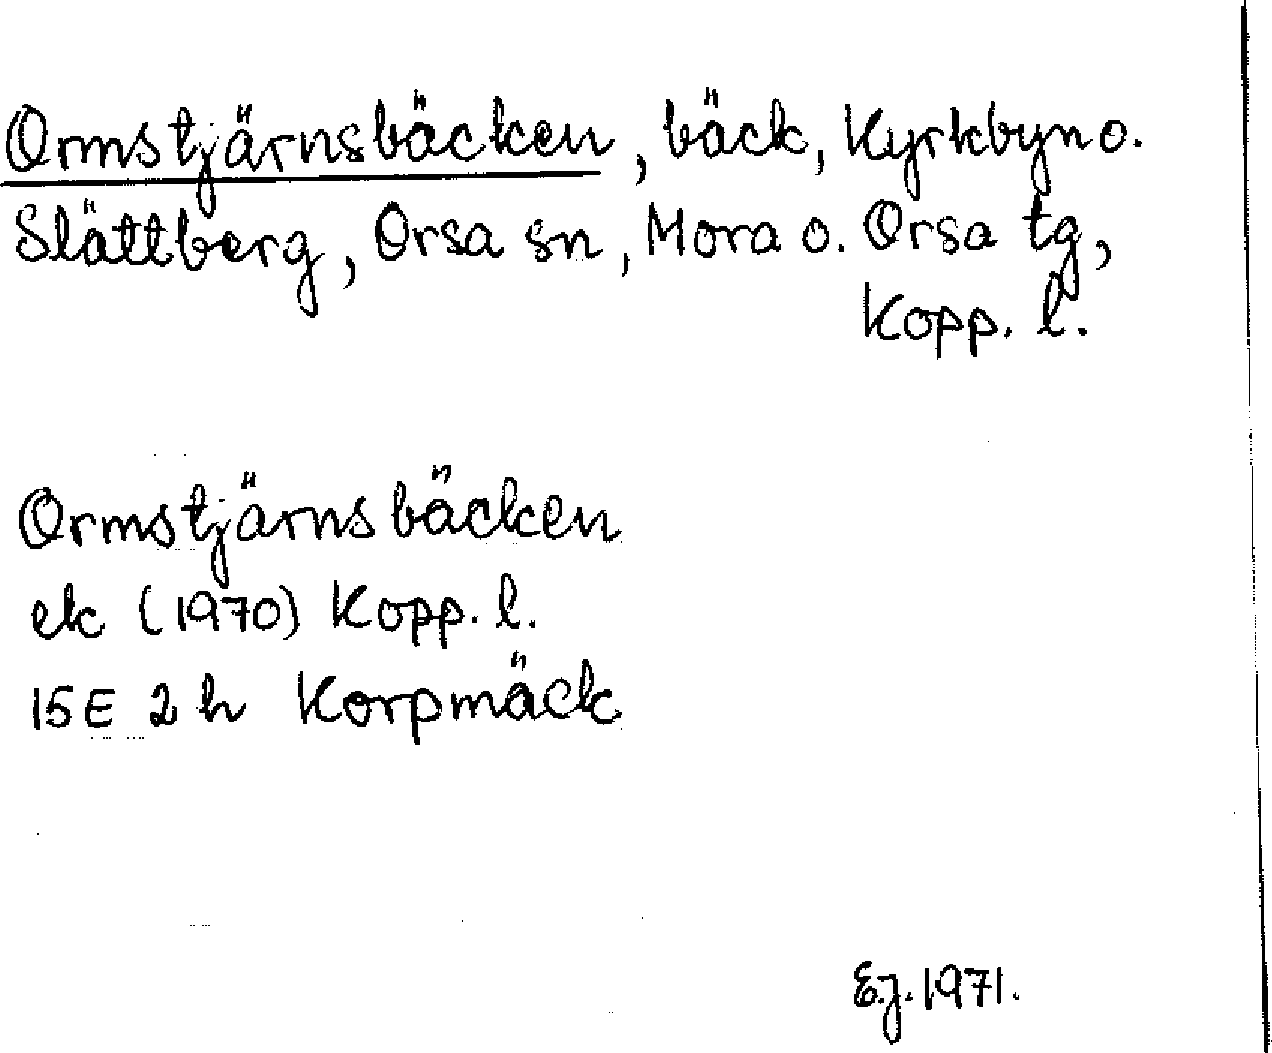 Ormstjärnsbäcken, bäck, Kyrkbyn o.
Slättberg, Orsa sn, Mora o. Orsa tg,
Kopp. l.
Ormstjärnsbäcken
ek (1970) Kopp. l.
15E 2h Korpmäck
E.J. 1971.